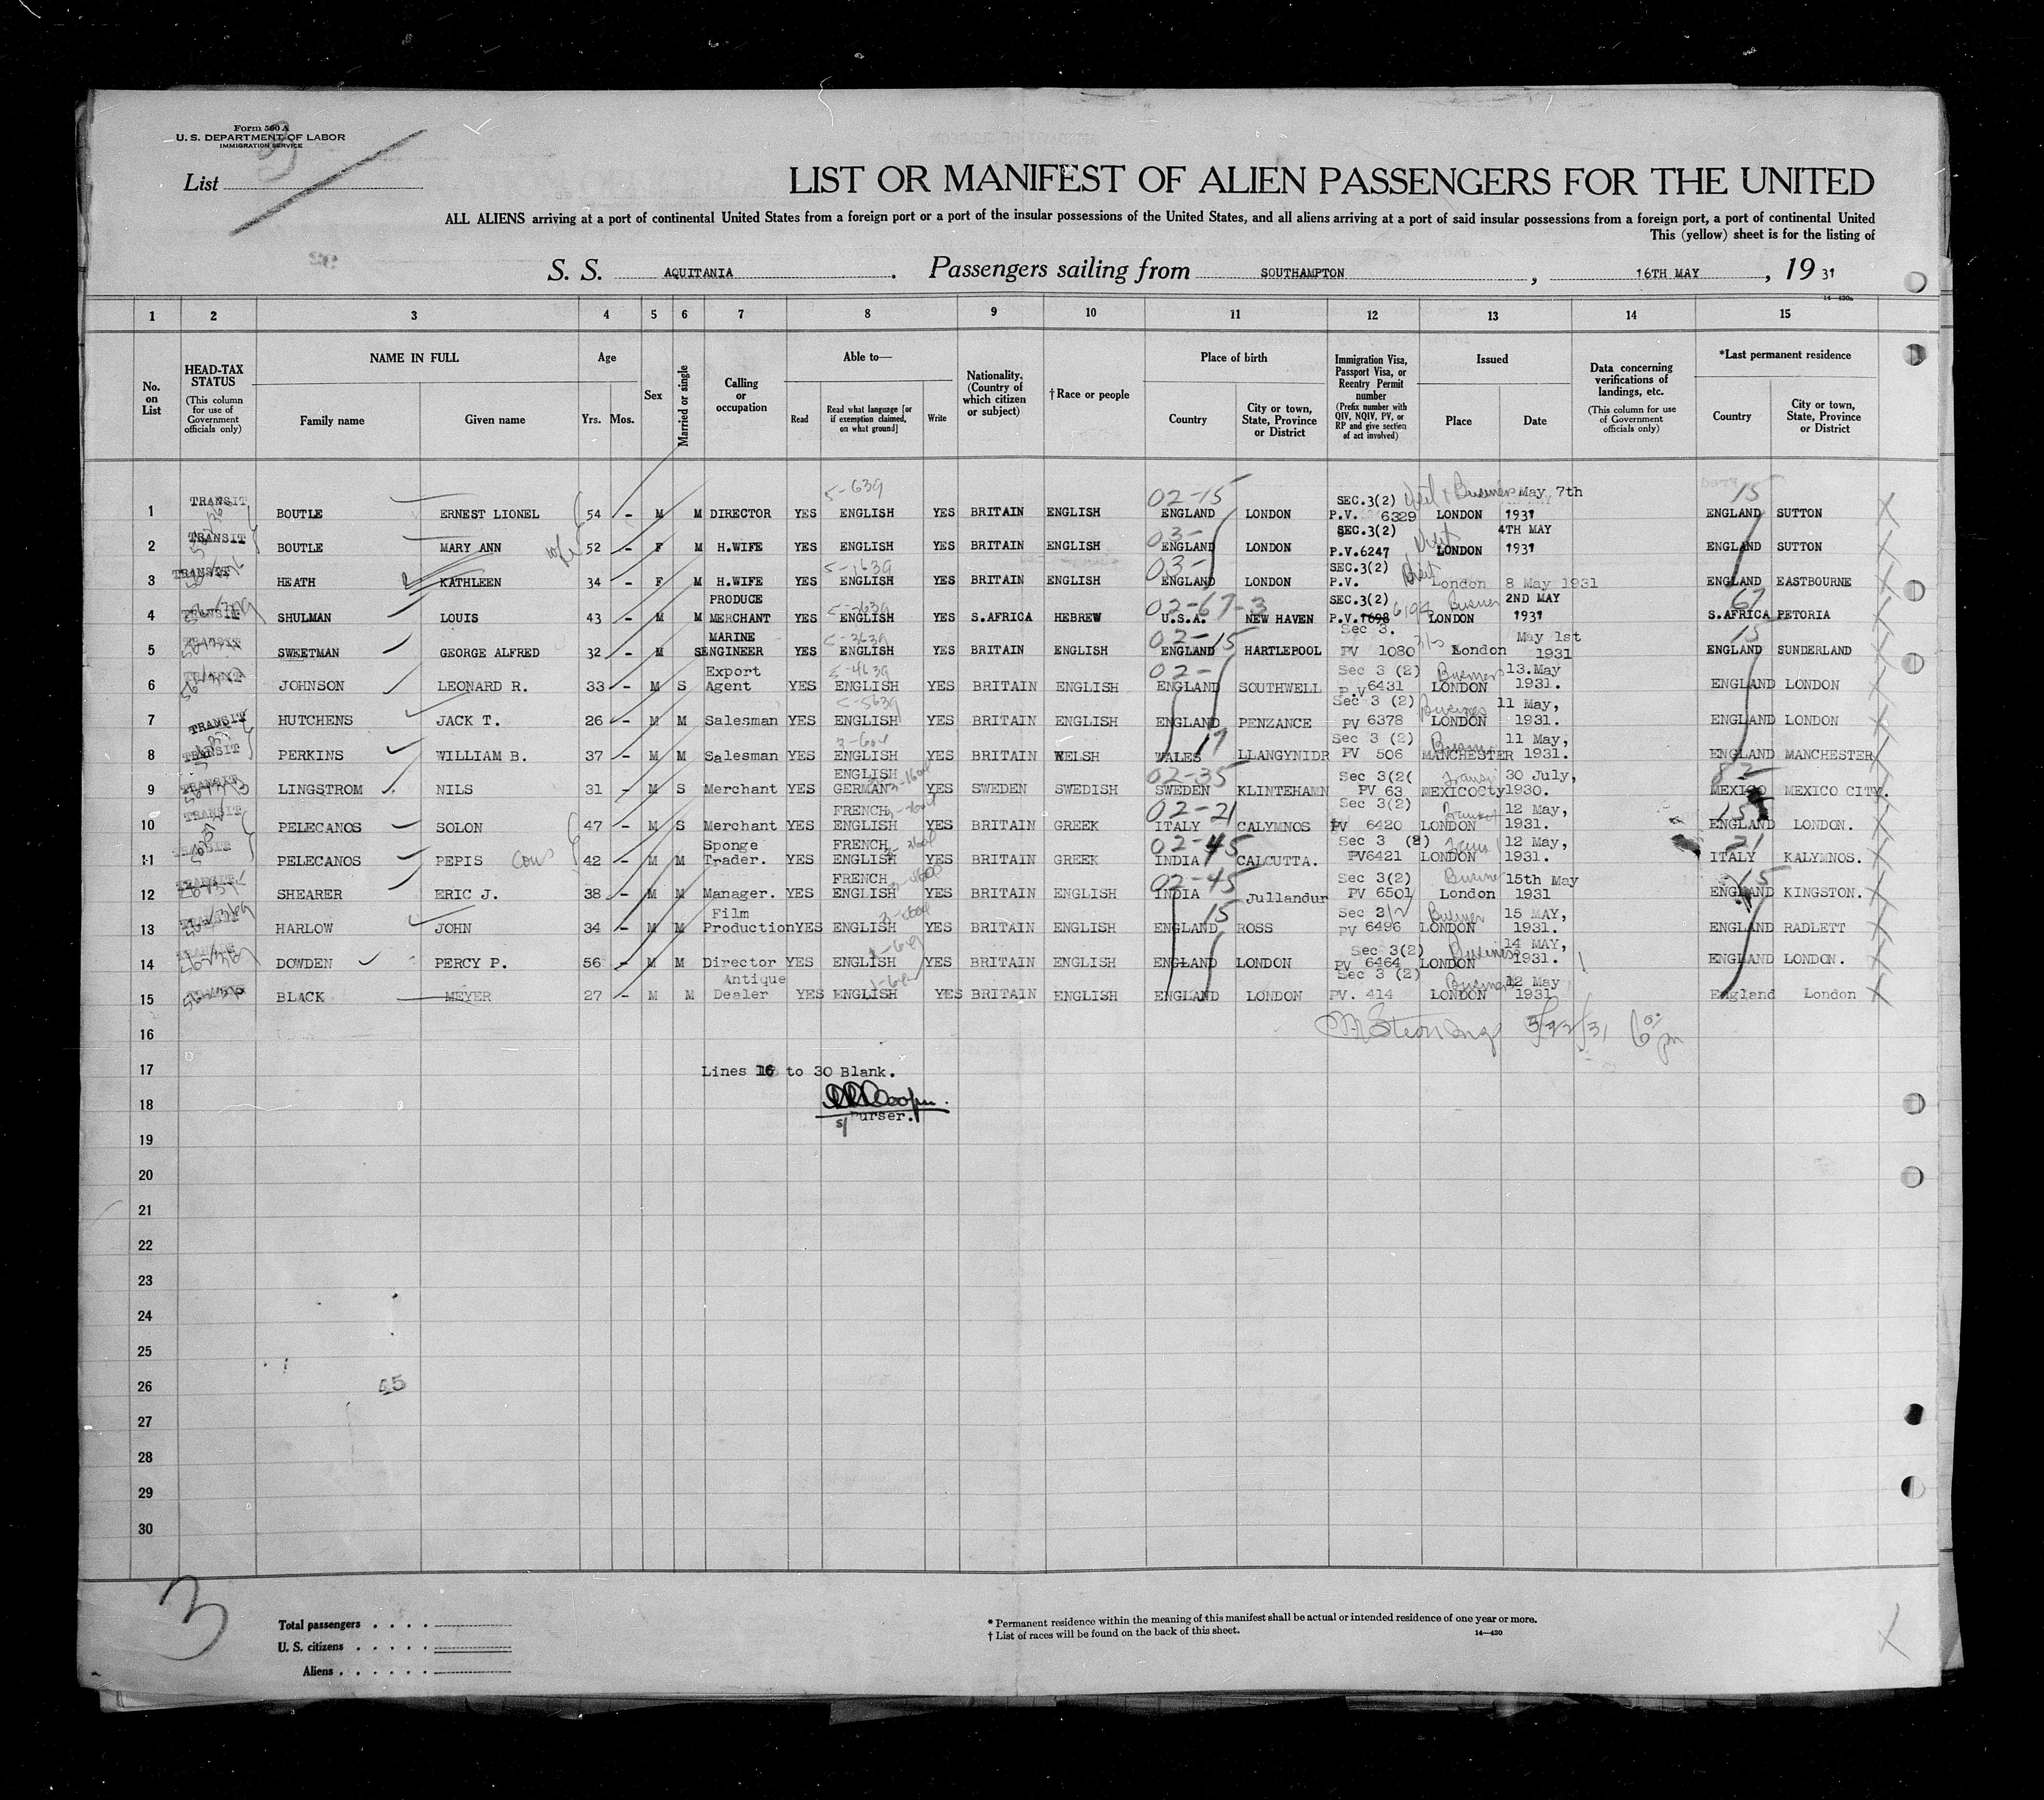 Form 500 A
U. S. DEPARTMENT OF LABOR
IMMIGRATION SERVICE
List
LIST OR MANIFEST OF ALIEN PASSENGERS FOR THE UNITED
ALL ALIENS arriving at a port of continental United States from a foreign port or a port of the insular possessions of the United States, and all aliens arriving at a port of said insular possessions from a foreign port, a port of continental United
This (yellow) sheet is for the listing of
S. S. AQUITANIA. Passengers sailing from SOUTHAMPTON, 16TH MAY, 19 31
1 2 3 4 5 6 7 8 9 10 11 12 13 14 15
No. on List
HEAD-TAX STATUS (This column for use of Government officials only)
NAME IN FULL Family name Given name
Age Yrs. Mos.
Sex
Married or single
Calling or occupation
Able to— Read Read what language [or if exemption claimed, on what ground] Write
Nationality. (Country of which citizen or subject)
†Race or people
Place of birth Country City or town, State, Province or District
Immigration Visa, Passport Visa, or Reentry Permit number (Prefix number with QIV, NQIV, PV, or RP and give section of act involved)
Issued Place Date
Data concerning verifications of landings, etc. (This column for use of Government officials only)
*Last permanent residence Country City or town, State, Province or District
1 TRANSIT BOUTLE ERNEST LIONEL 54 - M M DIRECTOR YES ENGLISH YES BRITAIN ENGLISH 02-15 ENGLAND LONDON SEC.3(2) P.V. 6329 LONDON May 7th 1931 15 ENGLAND SUTTON
2 TRANSIT BOUTLE MARY ANN wife 52 - F M H.WIFE YES ENGLISH YES BRITAIN ENGLISH 03- ENGLAND LONDON SEC.3(2) P.V.6247 Visit LONDON 4TH MAY 1931 ENGLAND SUTTON
3 TRANSIT HEATH KATHLEEN 34 - F M H.WIFE YES ENGLISH YES BRITAIN ENGLISH 03- ENGLAND LONDON SEC.3(2) P.V. Visit London 8 May 1931 ENGLAND EASTBOURNE
4 TRANSIT SHULMAN LOUIS 43 - M M PRODUCE MERCHANT YES ENGLISH YES S.AFRICA HEBREW 02-67-3 U.S.A. NEW HAVEN SEC.3(2) P.V.1698 6194 LONDON 2ND MAY 1931 67 S.AFRICA PETORIA
5 TRANSIT SWEETMAN GEORGE ALFRED 32 - M S MARINE ENGINEER YES ENGLISH YES BRITAIN ENGLISH 02-15 ENGLAND HARTLEPOOL Sec 3. PV 1080 London May 1st 1931 15 ENGLAND SUNDERLAND
6 TRANSIT JOHNSON LEONARD R. 33 - M S Export Agent YES ENGLISH YES BRITAIN ENGLISH 02- ENGLAND SOUTHWELL Sec 3 (2) P.V 6431 Business LONDON 13.May 1931. ENGLAND LONDON
7 TRANSIT HUTCHENS JACK T. 26 - M M Salesman YES ENGLISH YES BRITAIN ENGLISH ENGLAND PENZANCE Sec 3 (2) PV 6378 Business LONDON 11 May, 1931. ENGLAND LONDON
8 TRANSIT PERKINS WILLIAM B. 37 - M M Salesman YES ENGLISH YES BRITAIN WELSH 17 WALES LLANGYNIDR Sec 3 (2) PV 506 MANCHESTER 11 May, 1931. ENGLAND MANCHESTER
9 TRANSIT LINGSTROM NILS 31 - M S Merchant YES ENGLISH GERMAN YES SWEDEN SWEDISH 02-35 SWEDEN KLINTEHAMN Sec 3(2( PV 63 MEXICOCty 30 July, 1930. MEXICO MEXICO CITY.
10 TRANSIT PELECANOS SOLON 47 - M S Merchant YES FRENCH ENGLISH YES BRITAIN GREEK 02-21 ITALY CALYMNOS Sec 3(2) PV 6420 LONDON 12 May, 1931. 15 ENGLAND LONDON.
11 TRANSIT PELECANOS PEPIS Cous 42 - M M Sponge Trader. YES FRENCH ENGLISH YES BRITAIN GREEK 02-45 INDIA CALCUTTA. Sec 3 (2) PV6421 LONDON 12 May, 1931. 21 ITALY KALYMNOS.
12 TRANSIT SHEARER ERIC J. 38 - M M Manager. YES FRENCH ENGLISH YES BRITAIN ENGLISH 02-45 INDIA Jullandur Sec 3(2) PV 6501 London 15th May 1931 15 ENGLAND KINGSTON.
13 HARLOW JOHN 34 - M M Film Production YES ENGLISH YES BRITAIN ENGLISH 15 ENGLAND ROSS Sec 3/2 PV 6496 LONDON 15 MAY, 1931. ENGLAND RADLETT
14 DOWDEN PERCY P. 56 - M M Director YES ENGLISH YES BRITAIN ENGLISH ENGLAND LONDON Sec 3(2) PV 6464 Business LONDON 14 MAY, 1931. ENGLAND LONDON.
15 BLACK MEYER 27 - M M Antique Dealer YES ENGLISH YES BRITAIN ENGLISH ENGLAND LONDON Sec 3 (2) PV. 414 Business LONDON 12 May 1931 England London
16
17 Lines 16 to 30 Blank.
18
Purser.
19
20
21
22
23
24
25
26
27
28
29
30
3
Total passengers
U. S. citizens
Aliens
* Permanent residence within the meaning of this manifest shall be actual or intended residence of one year or more.
† List of races will be found on the back of this sheet.
14—430